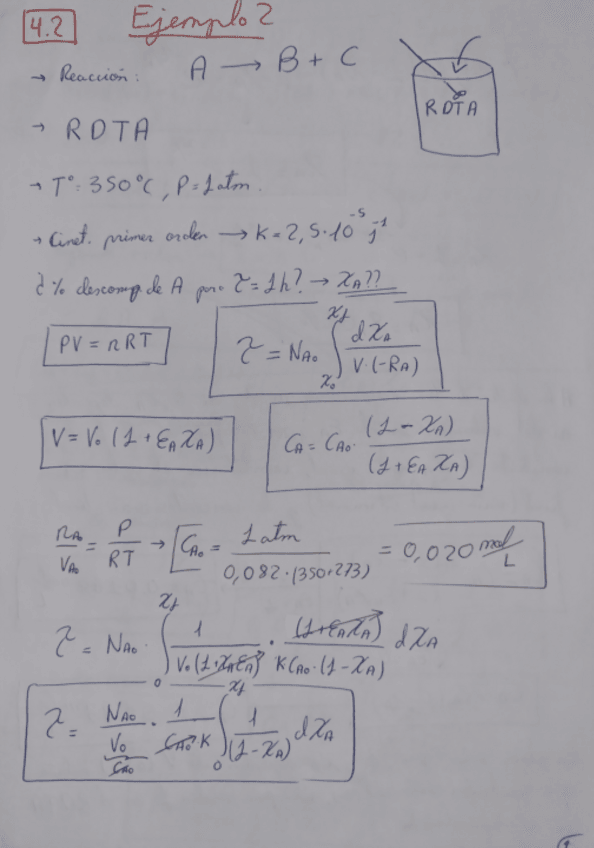 4.2 Ejemplo 2
→ Reacción: A → B + C
RDTA
→ RDTA
→ Tº = 350ºC, P = 1 atm.
→ Cinet. primer orden → K = 2,5·10⁻⁵ s⁻¹
¿% descomp de A para τ = 1h? → X_A??
PV = nRT
τ = N_A₀ ∫_{X₀}^{X_f} dX_A / (V·(-R_A))
V = V₀ (1 + ε_A X_A)
C_A = C_A₀ · (1 - X_A) / (1 + ε_A X_A)
n_A₀ / V_A₀ = P / RT → C_A₀ = 1 atm / (0,082·(350+273)) = 0,020 mol/L
τ = N_A₀ · ∫_0^{X_f} 1 / (V₀(1+X_A ε_A)) · (1+ε_A X_A) / (K C_A₀·(1-X_A)) dX_A
τ = N_A₀ / V₀ · 1 / (C_A₀ K) ∫_0^{X_f} 1 / (1-X_A) dX_A
C_A₀